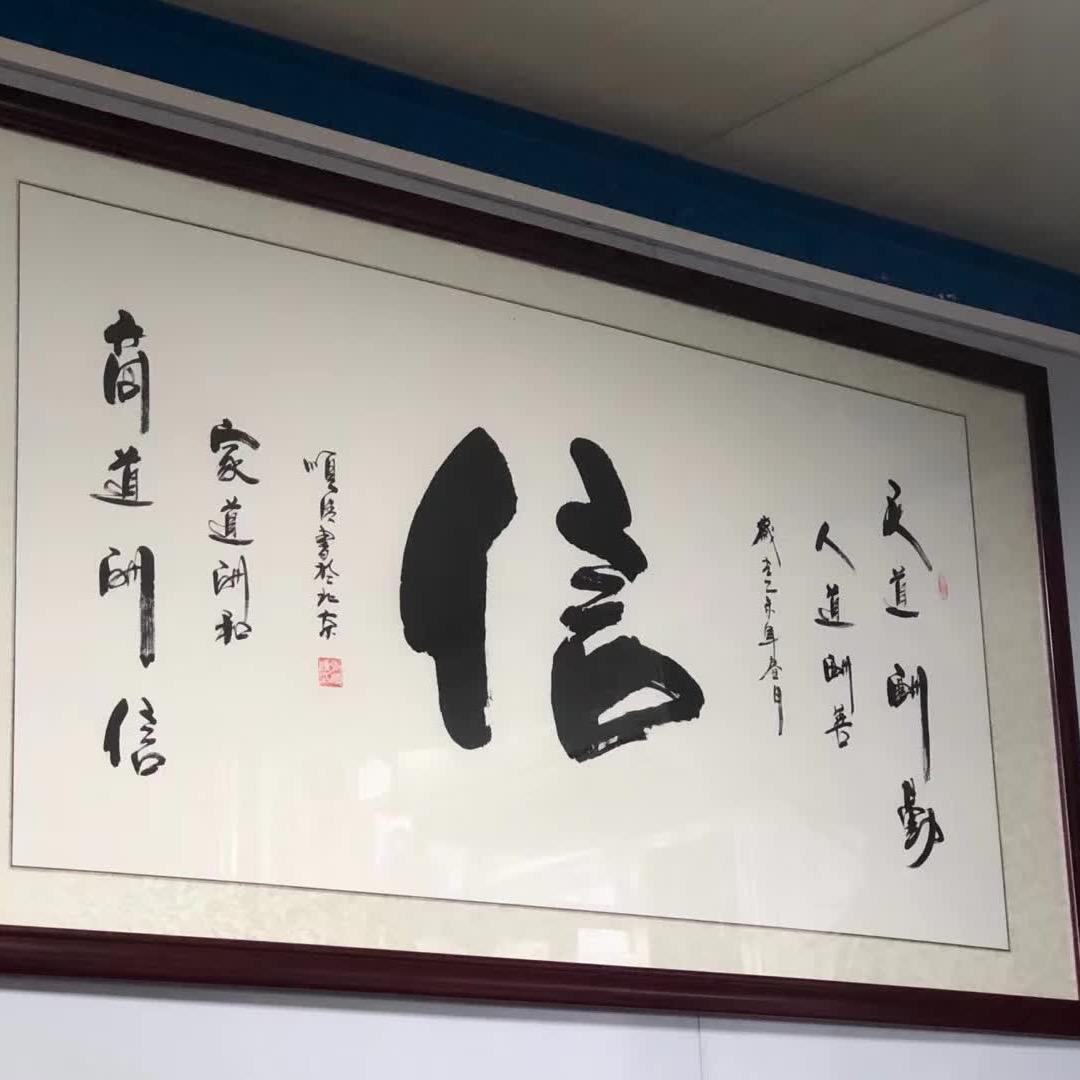 天道酬勤
人道酬善
歲在乙未年春日
信
順書於北京
家道酬和
商道酬信